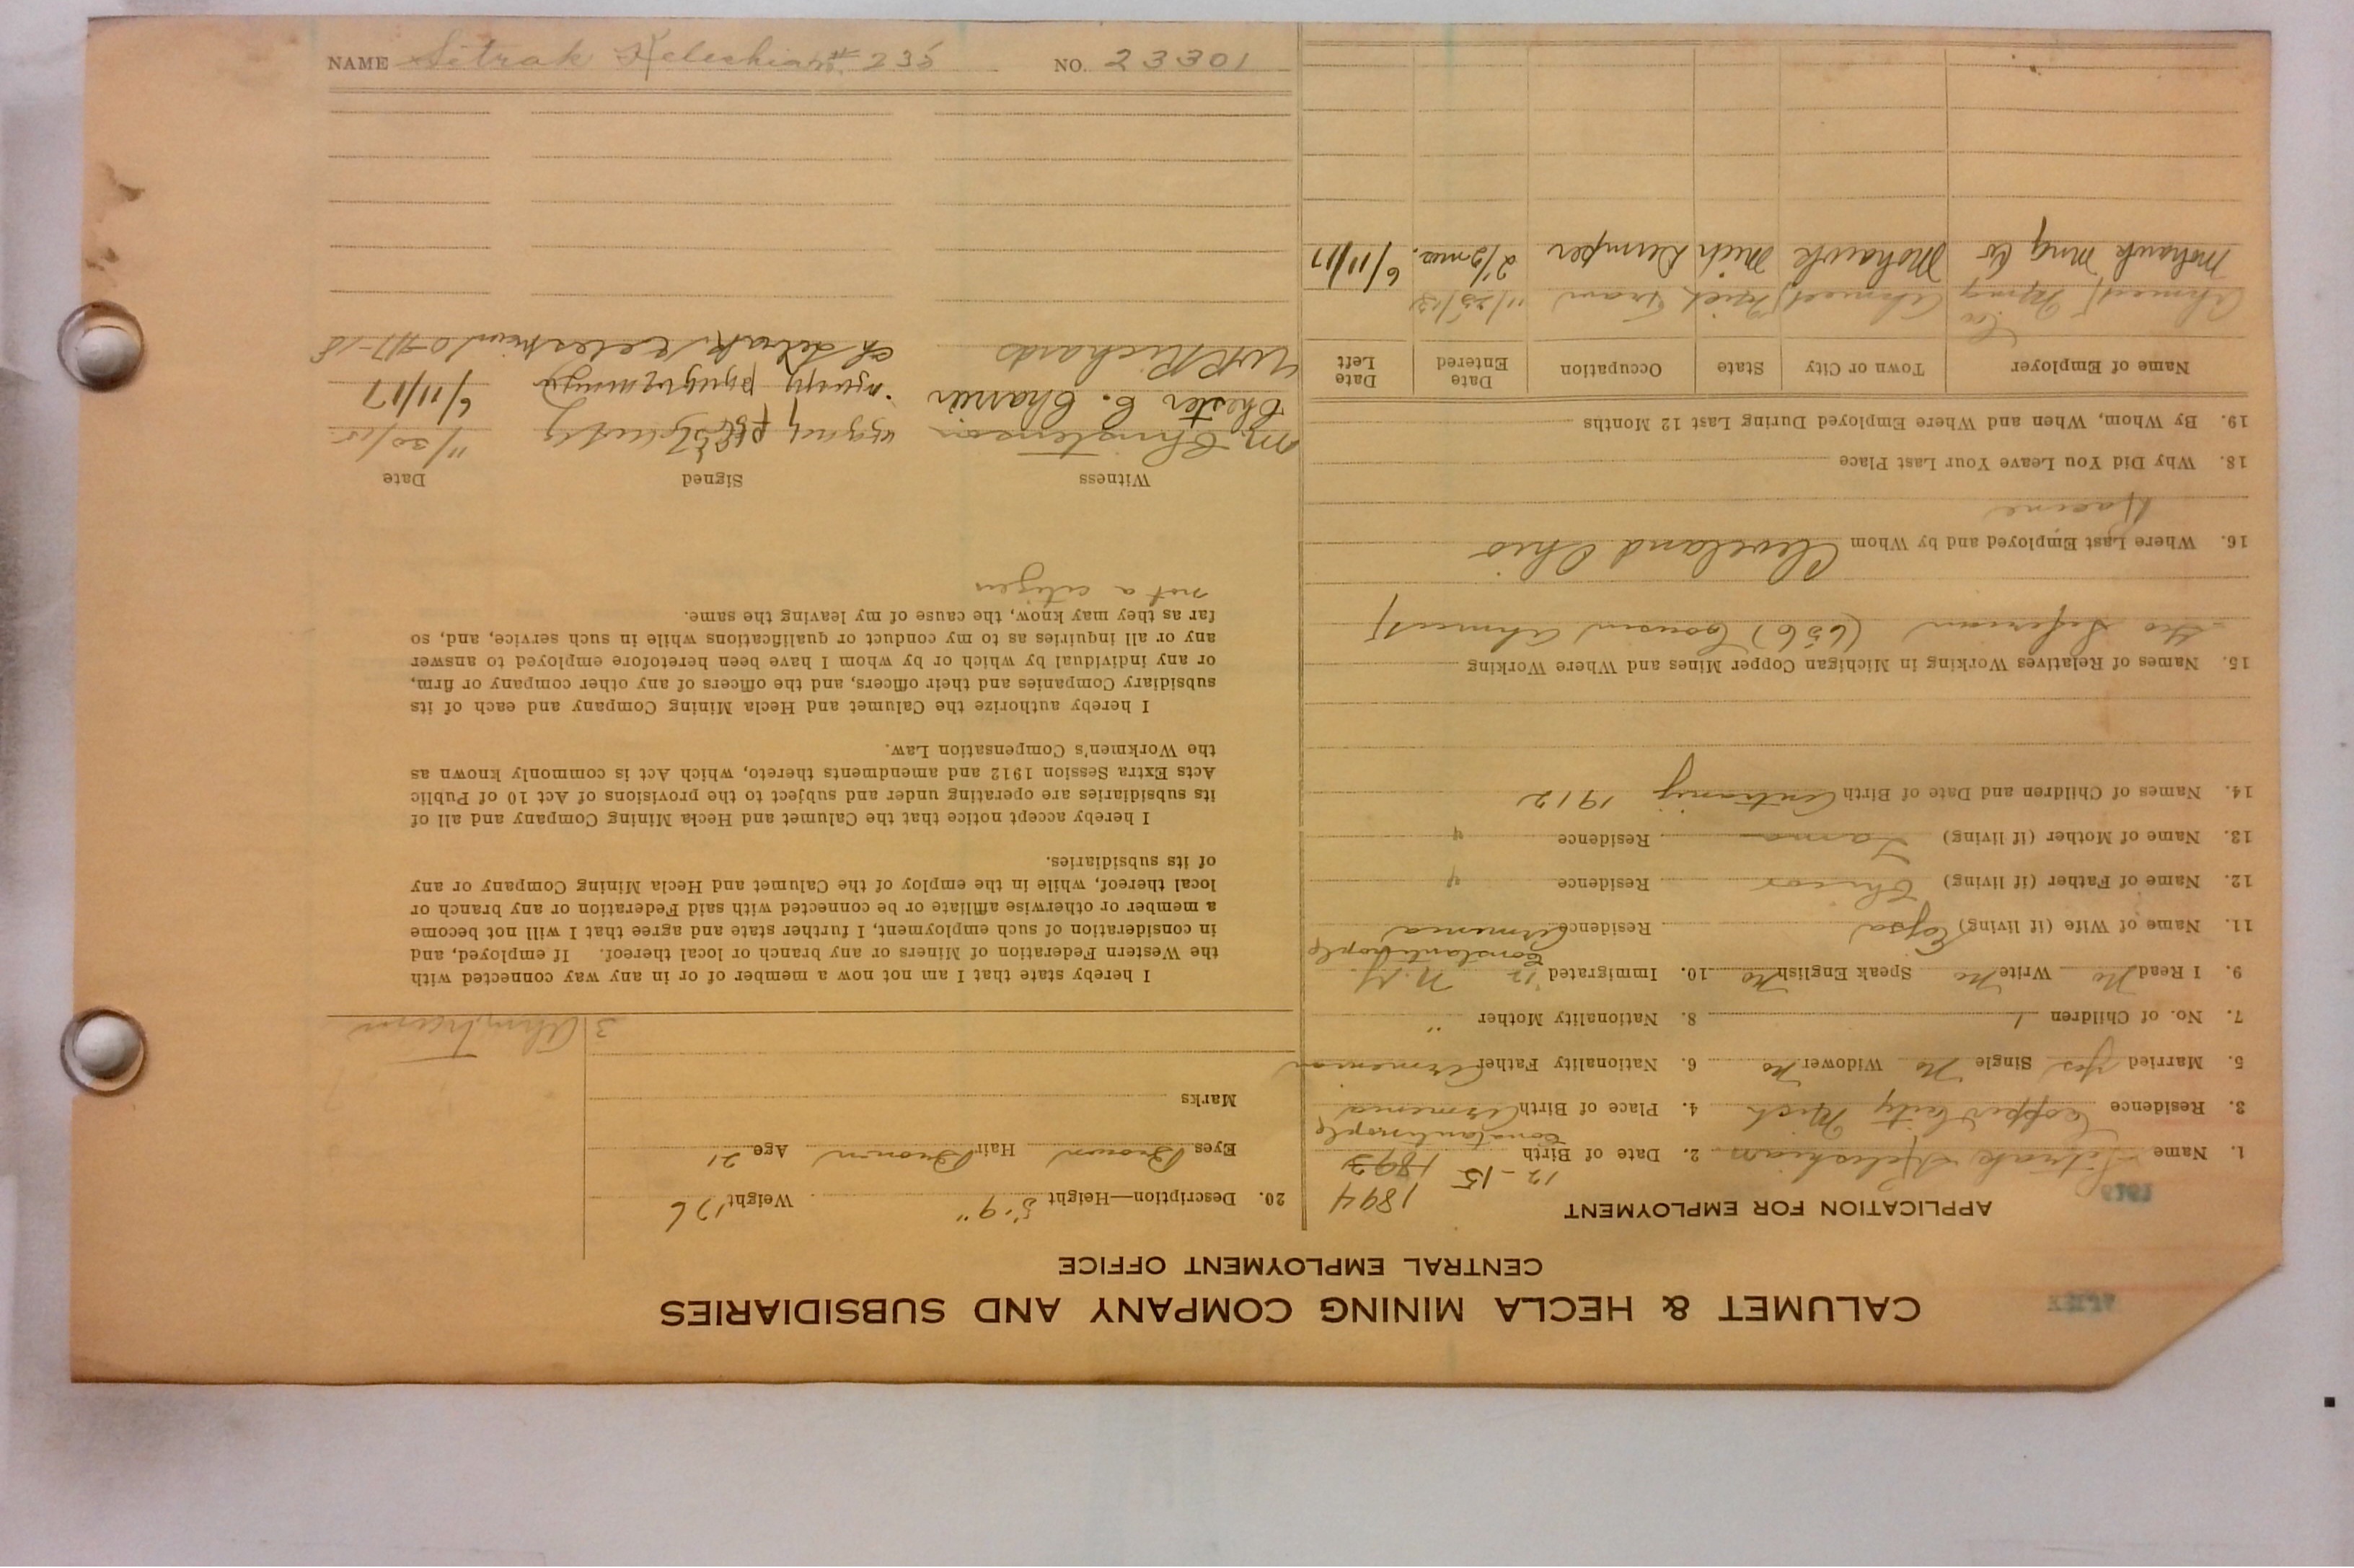 CALUMET & HECLA MINING COMPANY AND SUBSIDIARIES
CENTRAL EMPLOYMENT OFFICE
APPLICATION FOR EMPLOYMENT
1894
1. Name Sitrak Keleshian 2. Date of Birth 12-15 1893
Constantinople
3. Residence Copper City Mich 4. Place of Birth Armenia
5. Married Yes Single No Widower No 6. Nationality Father Armenian
7. No. of Children 1 8. Nationality Mother "
9. I Read No Write No Speak English No 10. Immigrated '12 N.Y.
Constantinople
11. Name of Wife (if living) Residence Armenia
12. Name of Father (if living) Residence "
13. Name of Mother (if living) Residence "
14. Names of Children and Date of Birth 1912
15. Names of Relatives Working in Michigan Copper Mines and Where Working
Geo Seferian (656) Cousin Ahmeek
16. Where Last Employed and by Whom Cleveland Ohio
Racine
18. Why Did You Leave Your Last Place
19. By Whom, When and Where Employed During Last 12 Months
Name of Employer Town or City State Occupation Date Entered Date Left
Ahmeek Mining Co Ahmeek Mich Tram
Mohawk Mng Co Mohawk Mich Dumper 2 1/2 mos. 6/11/17
20. Description—Height 5'9" Weight 176
Eyes Brown Hair Brown Age 21
Marks
3
I hereby state that I am not now a member of or in any way connected with
the Western Federation of Miners or any branch or local thereof. If employed, and
in consideration of such employment, I further state and agree that I will not become
a member or otherwise affiliate or be connected with said Federation or any branch or
local thereof, while in the employ of the Calumet and Hecla Mining Company or any
of its subsidiaries.
I hereby accept notice that the Calumet and Hecla Mining Company and all of
its subsidiaries are operating under and subject to the provisions of Act 10 of Public
Acts Extra Session 1912 and amendments thereto, which Act is commonly known as
the Workmen's Compensation Law.
I hereby authorize the Calumet and Hecla Mining Company and each of its
subsidiary Companies and their officers, and the officers of any other company or firm,
or any individual by which or by whom I have been heretofore employed to answer
any or all inquiries as to my conduct or qualifications while in such service, and, so
far as they may know, the cause of my leaving the same.
not a citizen
Witness Signed Date
M. Christenson 11/30/15
Chester C. Charrier 6/11/17
W R Richards Sitrak Keleshian
NAME Sitrak Keleshian # 235 NO. 23301